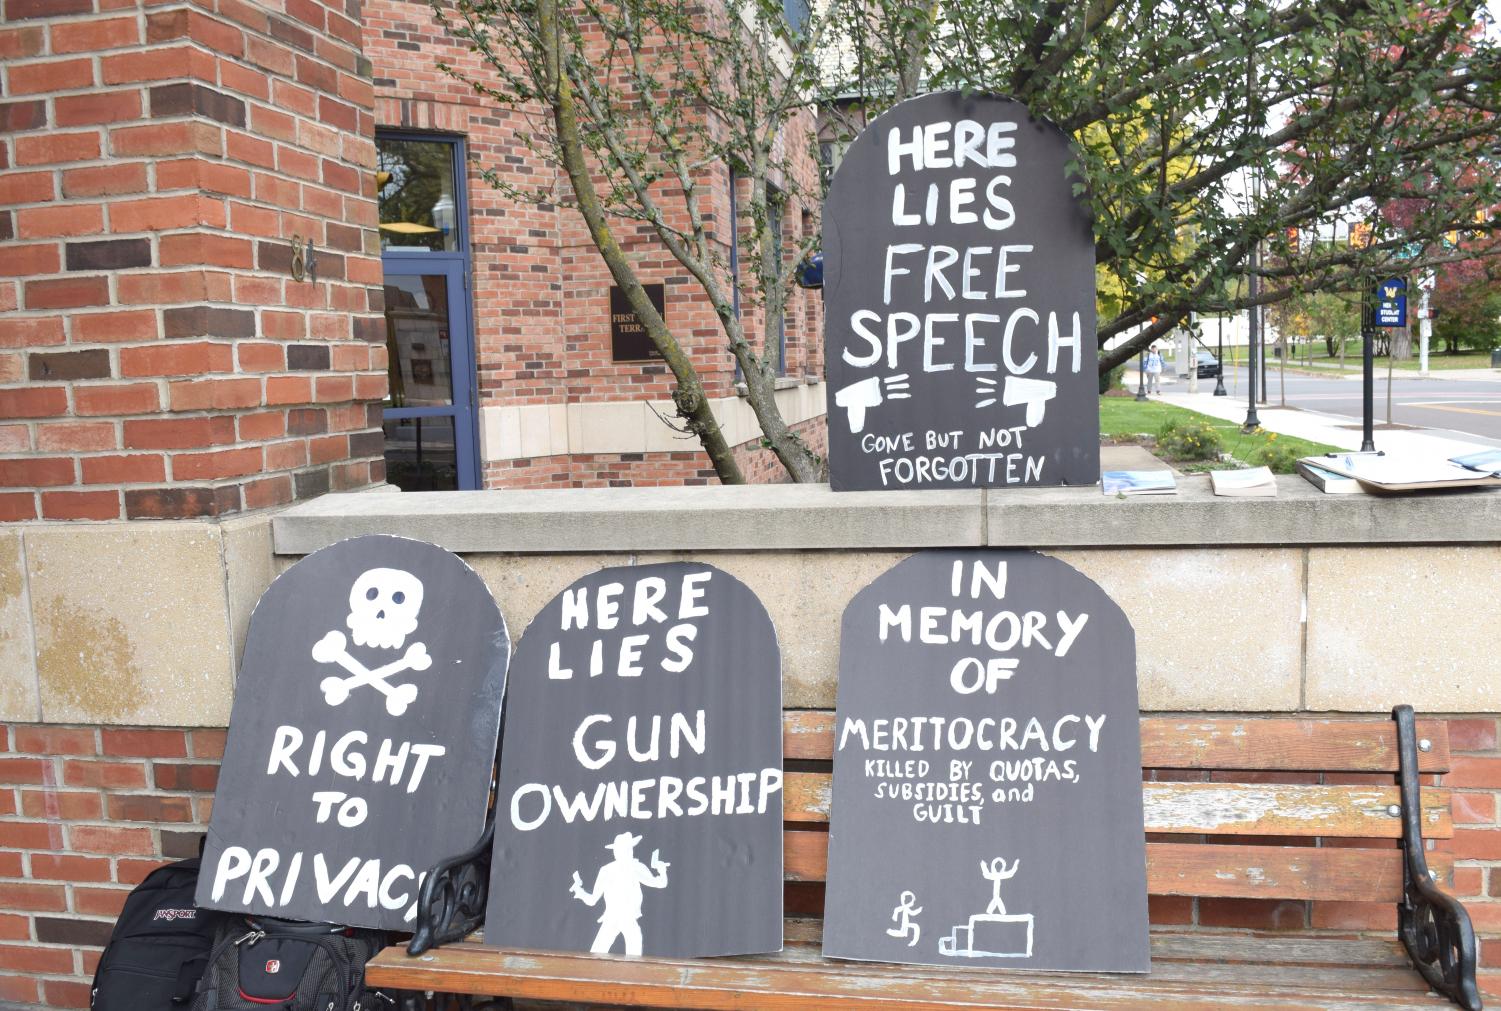 HERE
LIES
FREE
SPEECH
GONE BUT NOT
FORGOTTEN
84
FIRST
TERRA
W
STUDENT
CENTER
RIGHT
TO
PRIVACY
HERE
LIES
GUN
OWNERSHIP
IN
MEMORY
OF
MERITOCRACY
KILLED BY QUOTAS,
SUBSIDIES, and
GUILT
JANSPORT